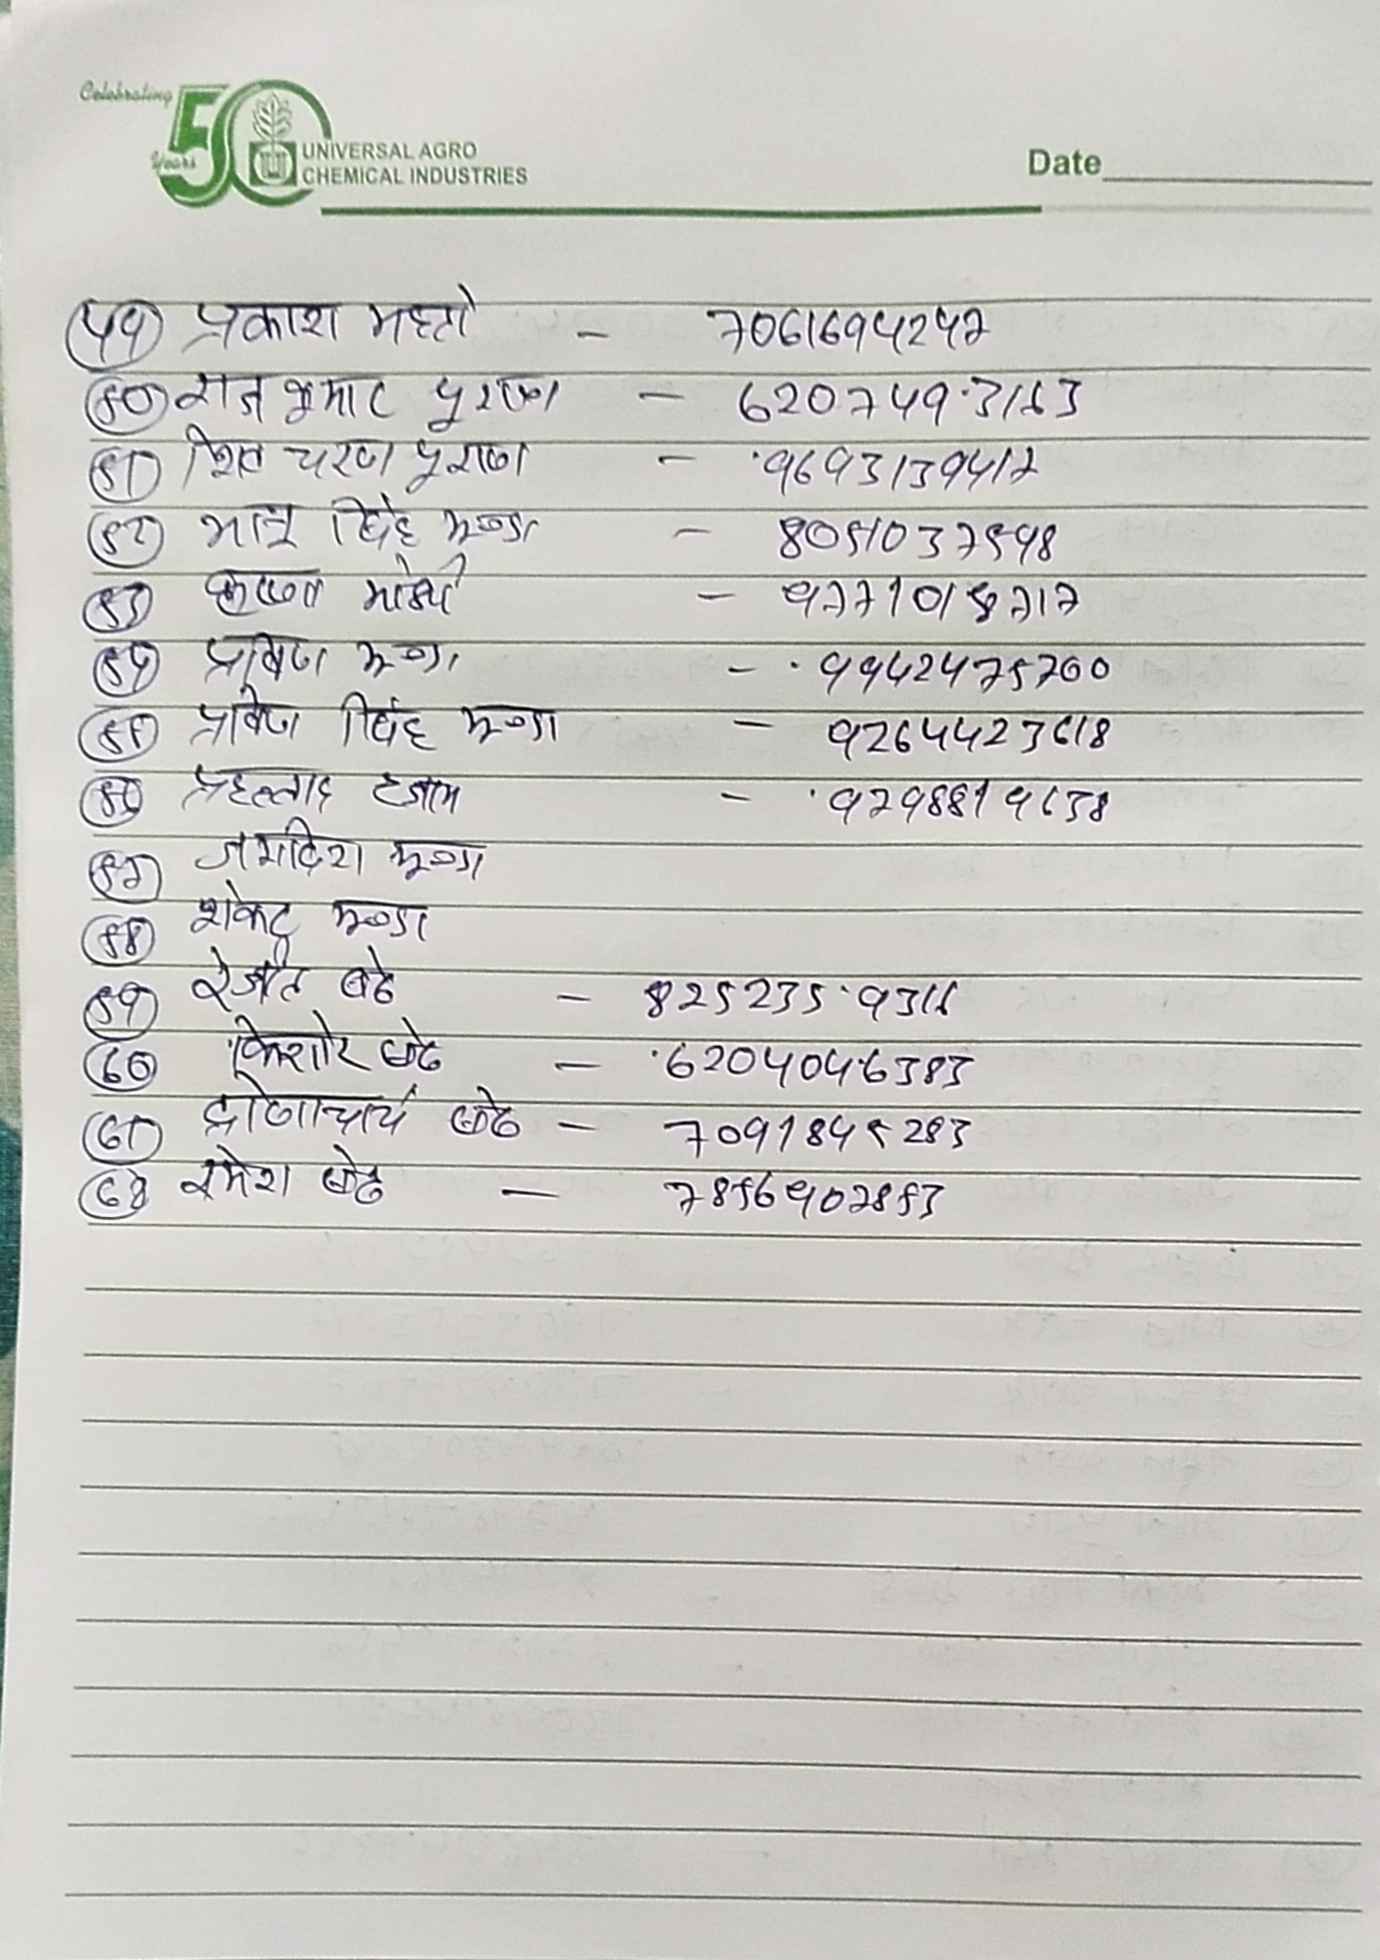 Celebrating
50
Years
UNIVERSAL AGRO
CHEMICAL INDUSTRIES
Date
49 प्रकाश महतो - 7061694247
50 राज कुमार पुराण - 6207493163
51 शिव चरण पुराण - 9693139417
52 भानू सिंह मुण्डा - 8051037548
53 कृष्णा माझी - 9771018717
54 प्रविण मुण्डा - 9942475700
55 प्रविण सिंह मुण्डा - 9264423618
56 प्रहल्लाद हजाम - 9798819638
57 जगदिश मुण्डा
58 मुण्डा
59 रंजीत बेदे - 8252359316
60 किशोर बेदे - 6204046383
61 द्रोणाचार्य बेदे - 7091845283
62 रमेश बेदे - 7856907853